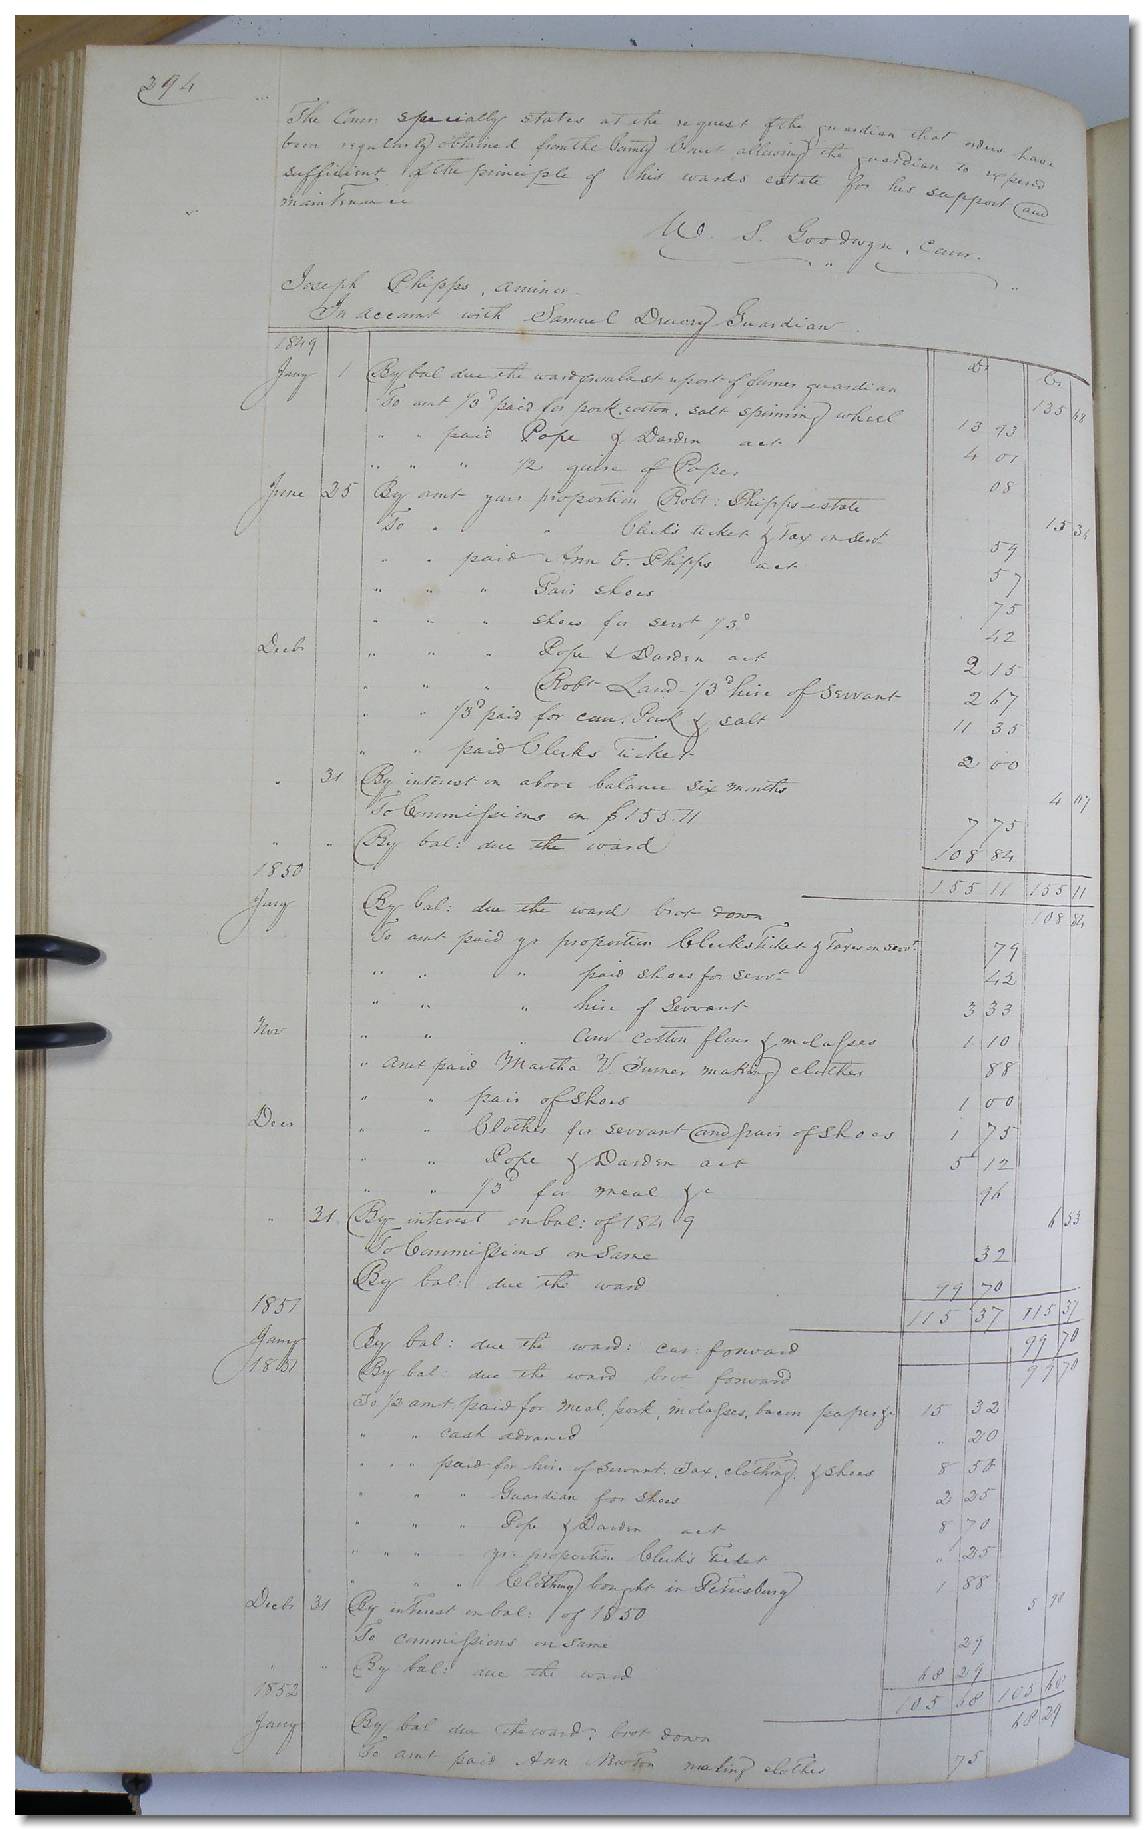 294
The Comr. specially states at the request of the guardian that orders have
been regularly obtained from the County Court allowing the guardian to expend
sufficient of the principle of his wards estate for his support and
maintenance
W. S. Goodwyn, Comr.
Joseph Phipps, a minor
In account with Samuel Drewry Guardian
1849 dr cr
Jany 1 By bal due the ward from last report of former guardian 135 68
To amt 1/3d paid for pork, cotton, salt spinning wheel 13 93
" " paid Pope & Darden act 4 01
" " " 1/2 quire of Paper 08
June 25 By amt your proportion Robt: Phipps estate 15 36
To " " Clerks ticket & Tax on Servt 59
" " paid Ann E. Phipps act 57
" " " Pair shoes 75
" " " shoes for servt 1/3d 42
Decbr " " " Pope & Darden act 2 15
" " " Robt Land 1/3d hire of Servant 2 67
" " 1/3d paid for corn, Pork & salt 11 35
" " paid Clerks Ticket 2 00
" 31 By interest on above balance six months 4 07
To Commissions on $155.11 7 75
" " By bal: due the ward 108 84
155 11 155 11
1850
Jany By bal: due the ward brot down 108 84
To amt paid yr proportion Clerks Ticket & Taxes on servt. 79
" " " paid shoes for servt 42
" " " hire of Servant 3 33
Nov " " " Corn cotton flour & molasses 1 10
" amt paid Martha V Turner making clothes 88
" " pair of shoes 1 00
Decr " " Clothes for servant and pair of shoes 1 75
" " Pope & Darden act 5 12
" " 1/3d for meal &c 96
" 31 By interest on bal: of 1849 6 53
To Commissions on Same 32
By bal: due the ward 99 70
115 37 115 37
1851
Jany By bal: due the ward: car: forward 99 70
1851 By bal: due the ward brot forward 99 70
To 1/2 amt paid for meal, pork, molasses, bacon paper &c 15 32
" " cash advanced " 20
" " " paid for hire of Servant. Tax, clothing, & shoes 8 50
" " " Guardian for shoes 2 25
" " " Pope & Darden act 8 70
" " " yr. proportion Clerks Ticket " 25
" " " Clothing bought in Petersburg 1 88
Decbr 31 By interest on bal: of 1850 5 98
To commissions on same 29
" " By bal: due the ward 68 29
105 68 105 68
1852
Jany By bal due the ward: brot down 68 29
To amt paid Ann making clothes 75